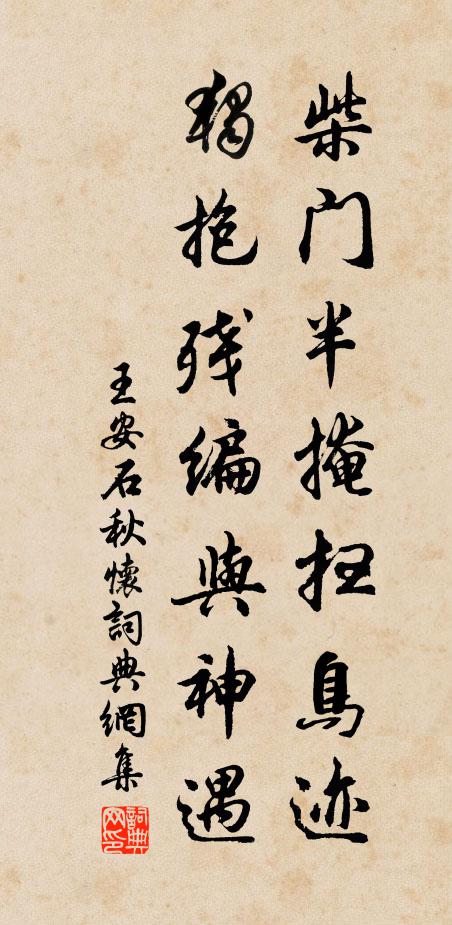 柴门半掩扫鸟迹
独抱残编与神遇
王安石秋怀詞典網集
詞典网印